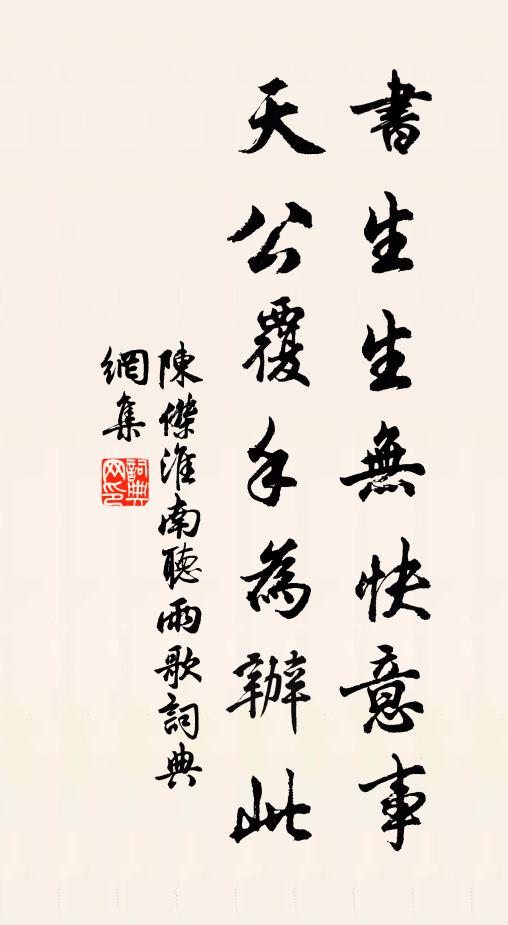 書生生無快意事
天公覆手為辦此
陳傑淮南聽雨歌詞典
網集
詞典
网印